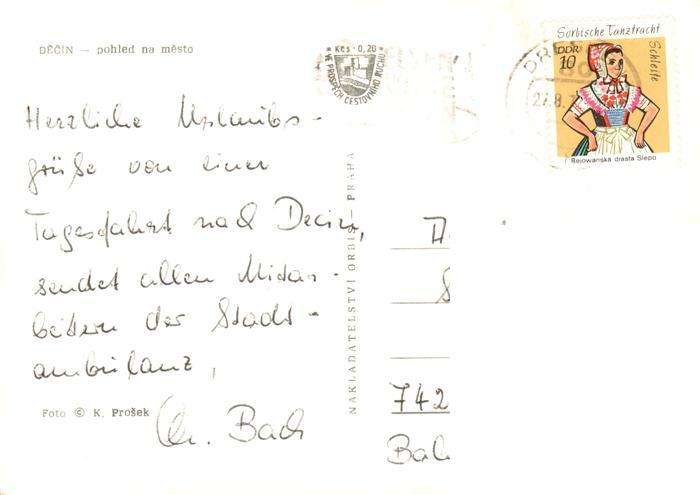 DĚČÍN — pohled na město
Kčs · 0,20
VE PROSPĚCH CESTOVNÍHO RUCHU
DRES
27.8.
Sorbische Tanztracht
Schleife
DDR
10
Rejowanska drasta Slepo
Herzliche Urlaubs-
grüße von einer
Tagesfahrt nach Decin,
sendet allen Mitar-
beitern der Stadt-
ambulanz,
Chr. Bach
Foto © K. Prošek
NAKLADATELSTVÍ ORBIS, PRAHA
742